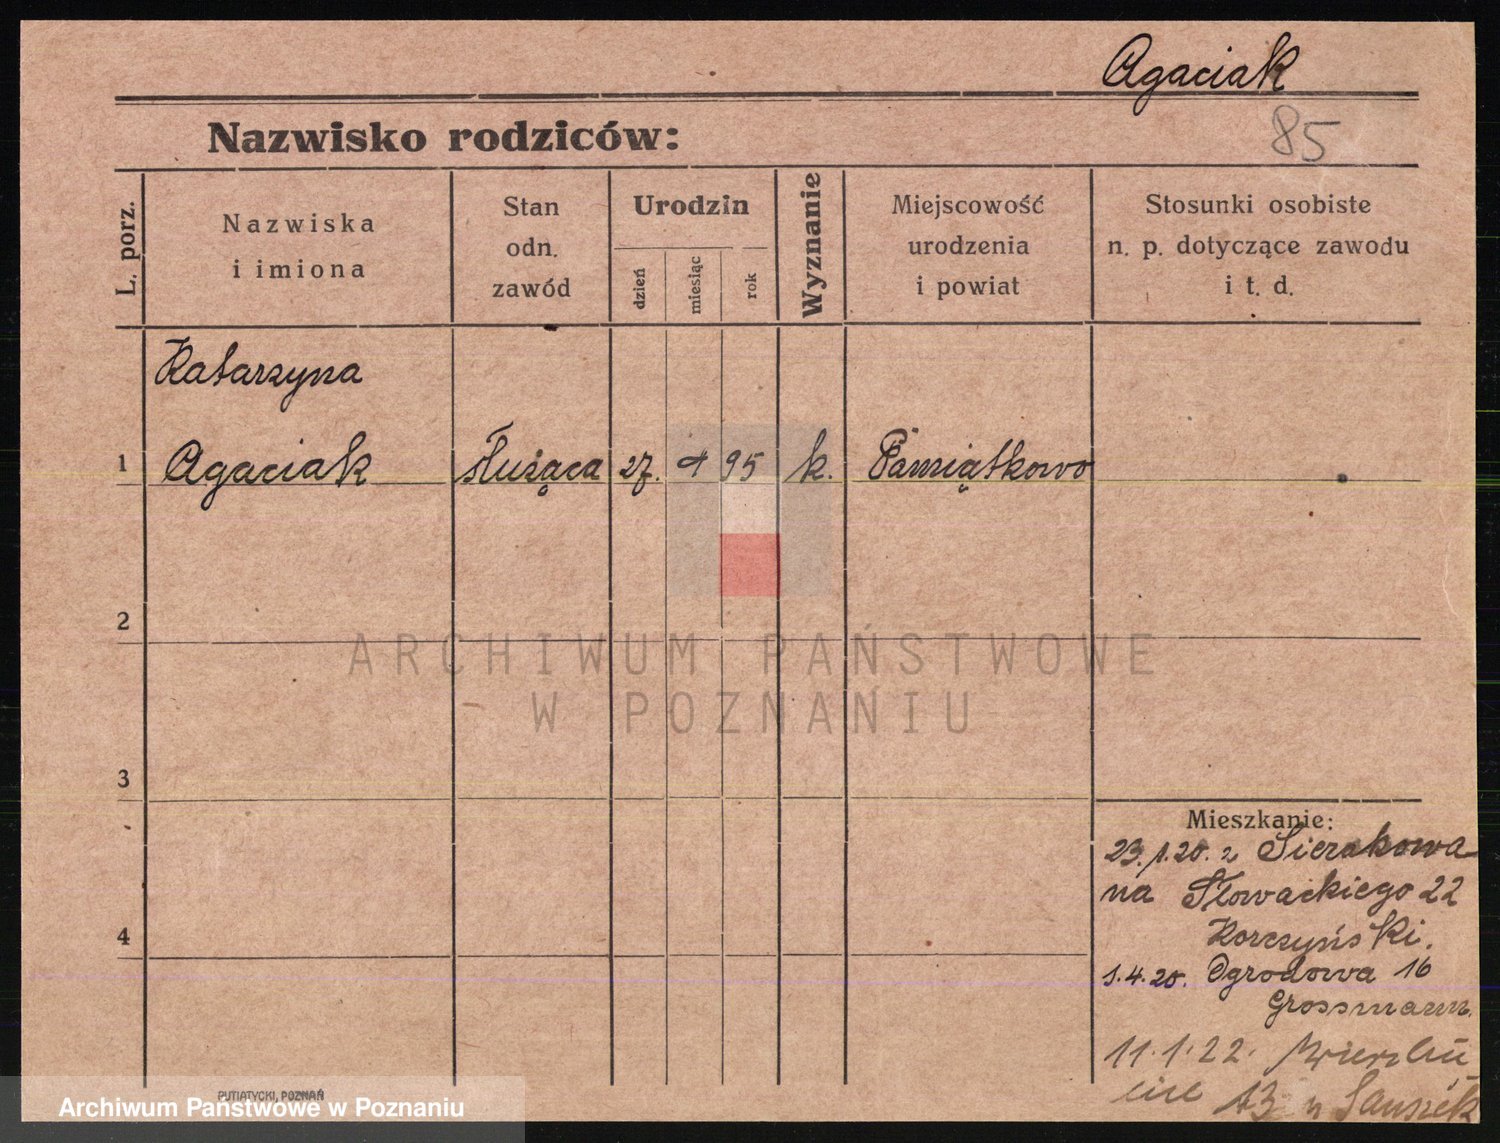 Agaciak
85
Nazwisko rodziców:
L. porz.
Nazwiska
i imiona
Stan
odn.
zawód
Urodzin
dzień
miesiąc
rok
Wyznanie
Miejscowość
urodzenia
i powiat
Stosunki osobiste
n. p. dotyczące zawodu
i t. d.
Katarzyna
1 Agaciak służąca 27. 95 k. Pamiątkowo
2
3
4
ARCHIWUM PAŃSTWOWE
W POZNANIU
Mieszkanie:
23.1.20. z Sierakowa
na Słowackiego 22
Korczyński.
1.4.20. Ogrodowa 16
Grossmann.
11.1.22.
13
PUTIATYCKI, POZNAŃ
Archiwum Państwowe w Poznaniu